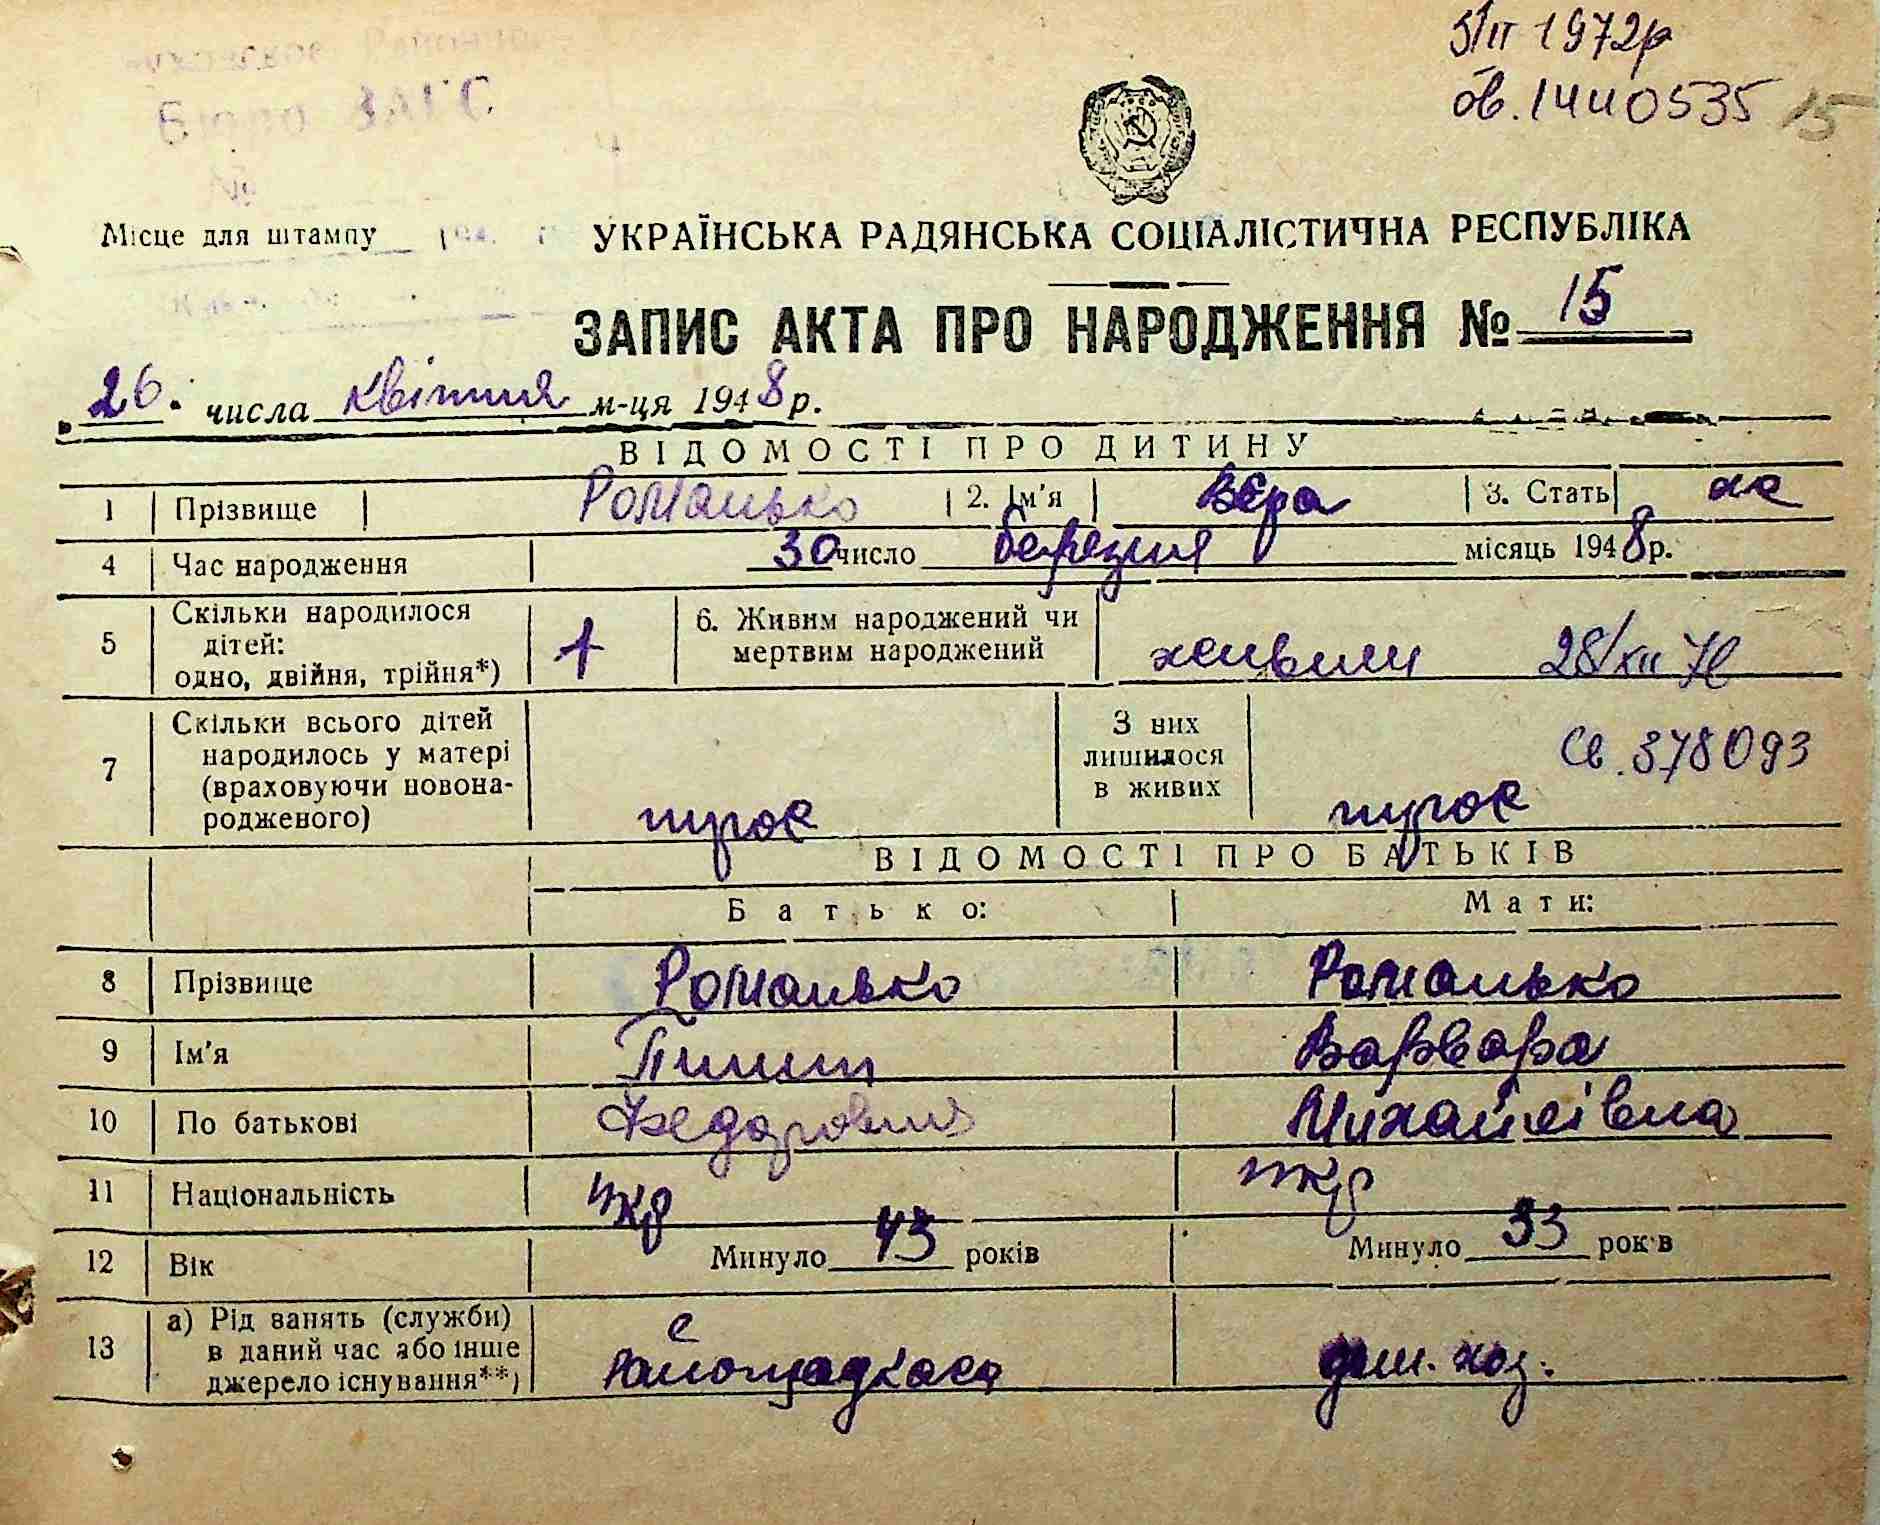 Бюро ЗАГС
1972р
14405​35 15
Місце для штампу
УКРАЇНСЬКА РАДЯНСЬКА СОЦІАЛІСТИЧНА РЕСПУБЛІКА
ЗАПИС АКТА ПРО НАРОДЖЕННЯ № 15
26. числа квітня м-ця 1948 р.
ВІДОМОСТІ ПРО ДИТИНУ
1 Прізвище Романько 2. Ім'я Вєра 3. Стать жк
4 Час народження 30 число березня місяць 1948 р.
5 Скільки народилося дітей: одно, двійня, трійня*) 1 6. Живим народжений чи мертвим народжений живим 28/XII
7 Скільки всього дітей народилось у матері (враховуючи новонародженого) З них лишилося в живих Св. 378093
ВІДОМОСТІ ПРО БАТЬКІВ
Батько: Мати:
8 Прізвище Романько Романько
9 Ім'я Пилип Варвара
10 По батькові Федорович Михайлівна
11 Національність укр укр
12 Вік Минуло 43 років Минуло 33 років
13 а) Рід занять (служби) в даний час або інше джерело існування**) дом. хоз.